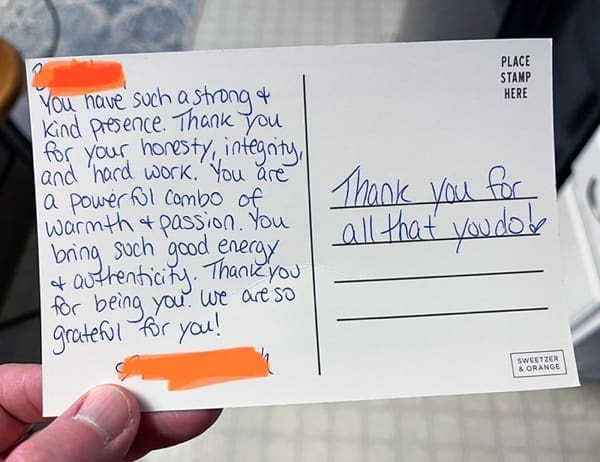 You have such a strong +
kind presence. Thank you
for your honesty, integrity,
and hard work. You are
a powerful combo of
warmth + passion. You
bring such good energy
+ authenticity. Thank you
for being you. We are so
grateful for you!
PLACE
STAMP
HERE
Thank you for
all that you do!
SWEETZER
& ORANGE